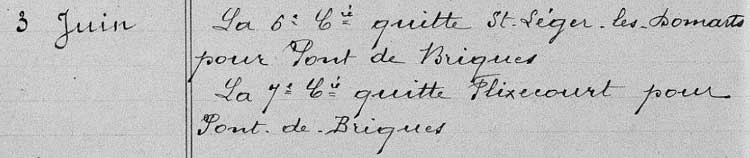 3 Juin
La 6e Cie quitte St. Léger-les-Domarts
pour Pont de Briques
La 7e Cie quitte Flixecourt pour
Pont-de-Briques